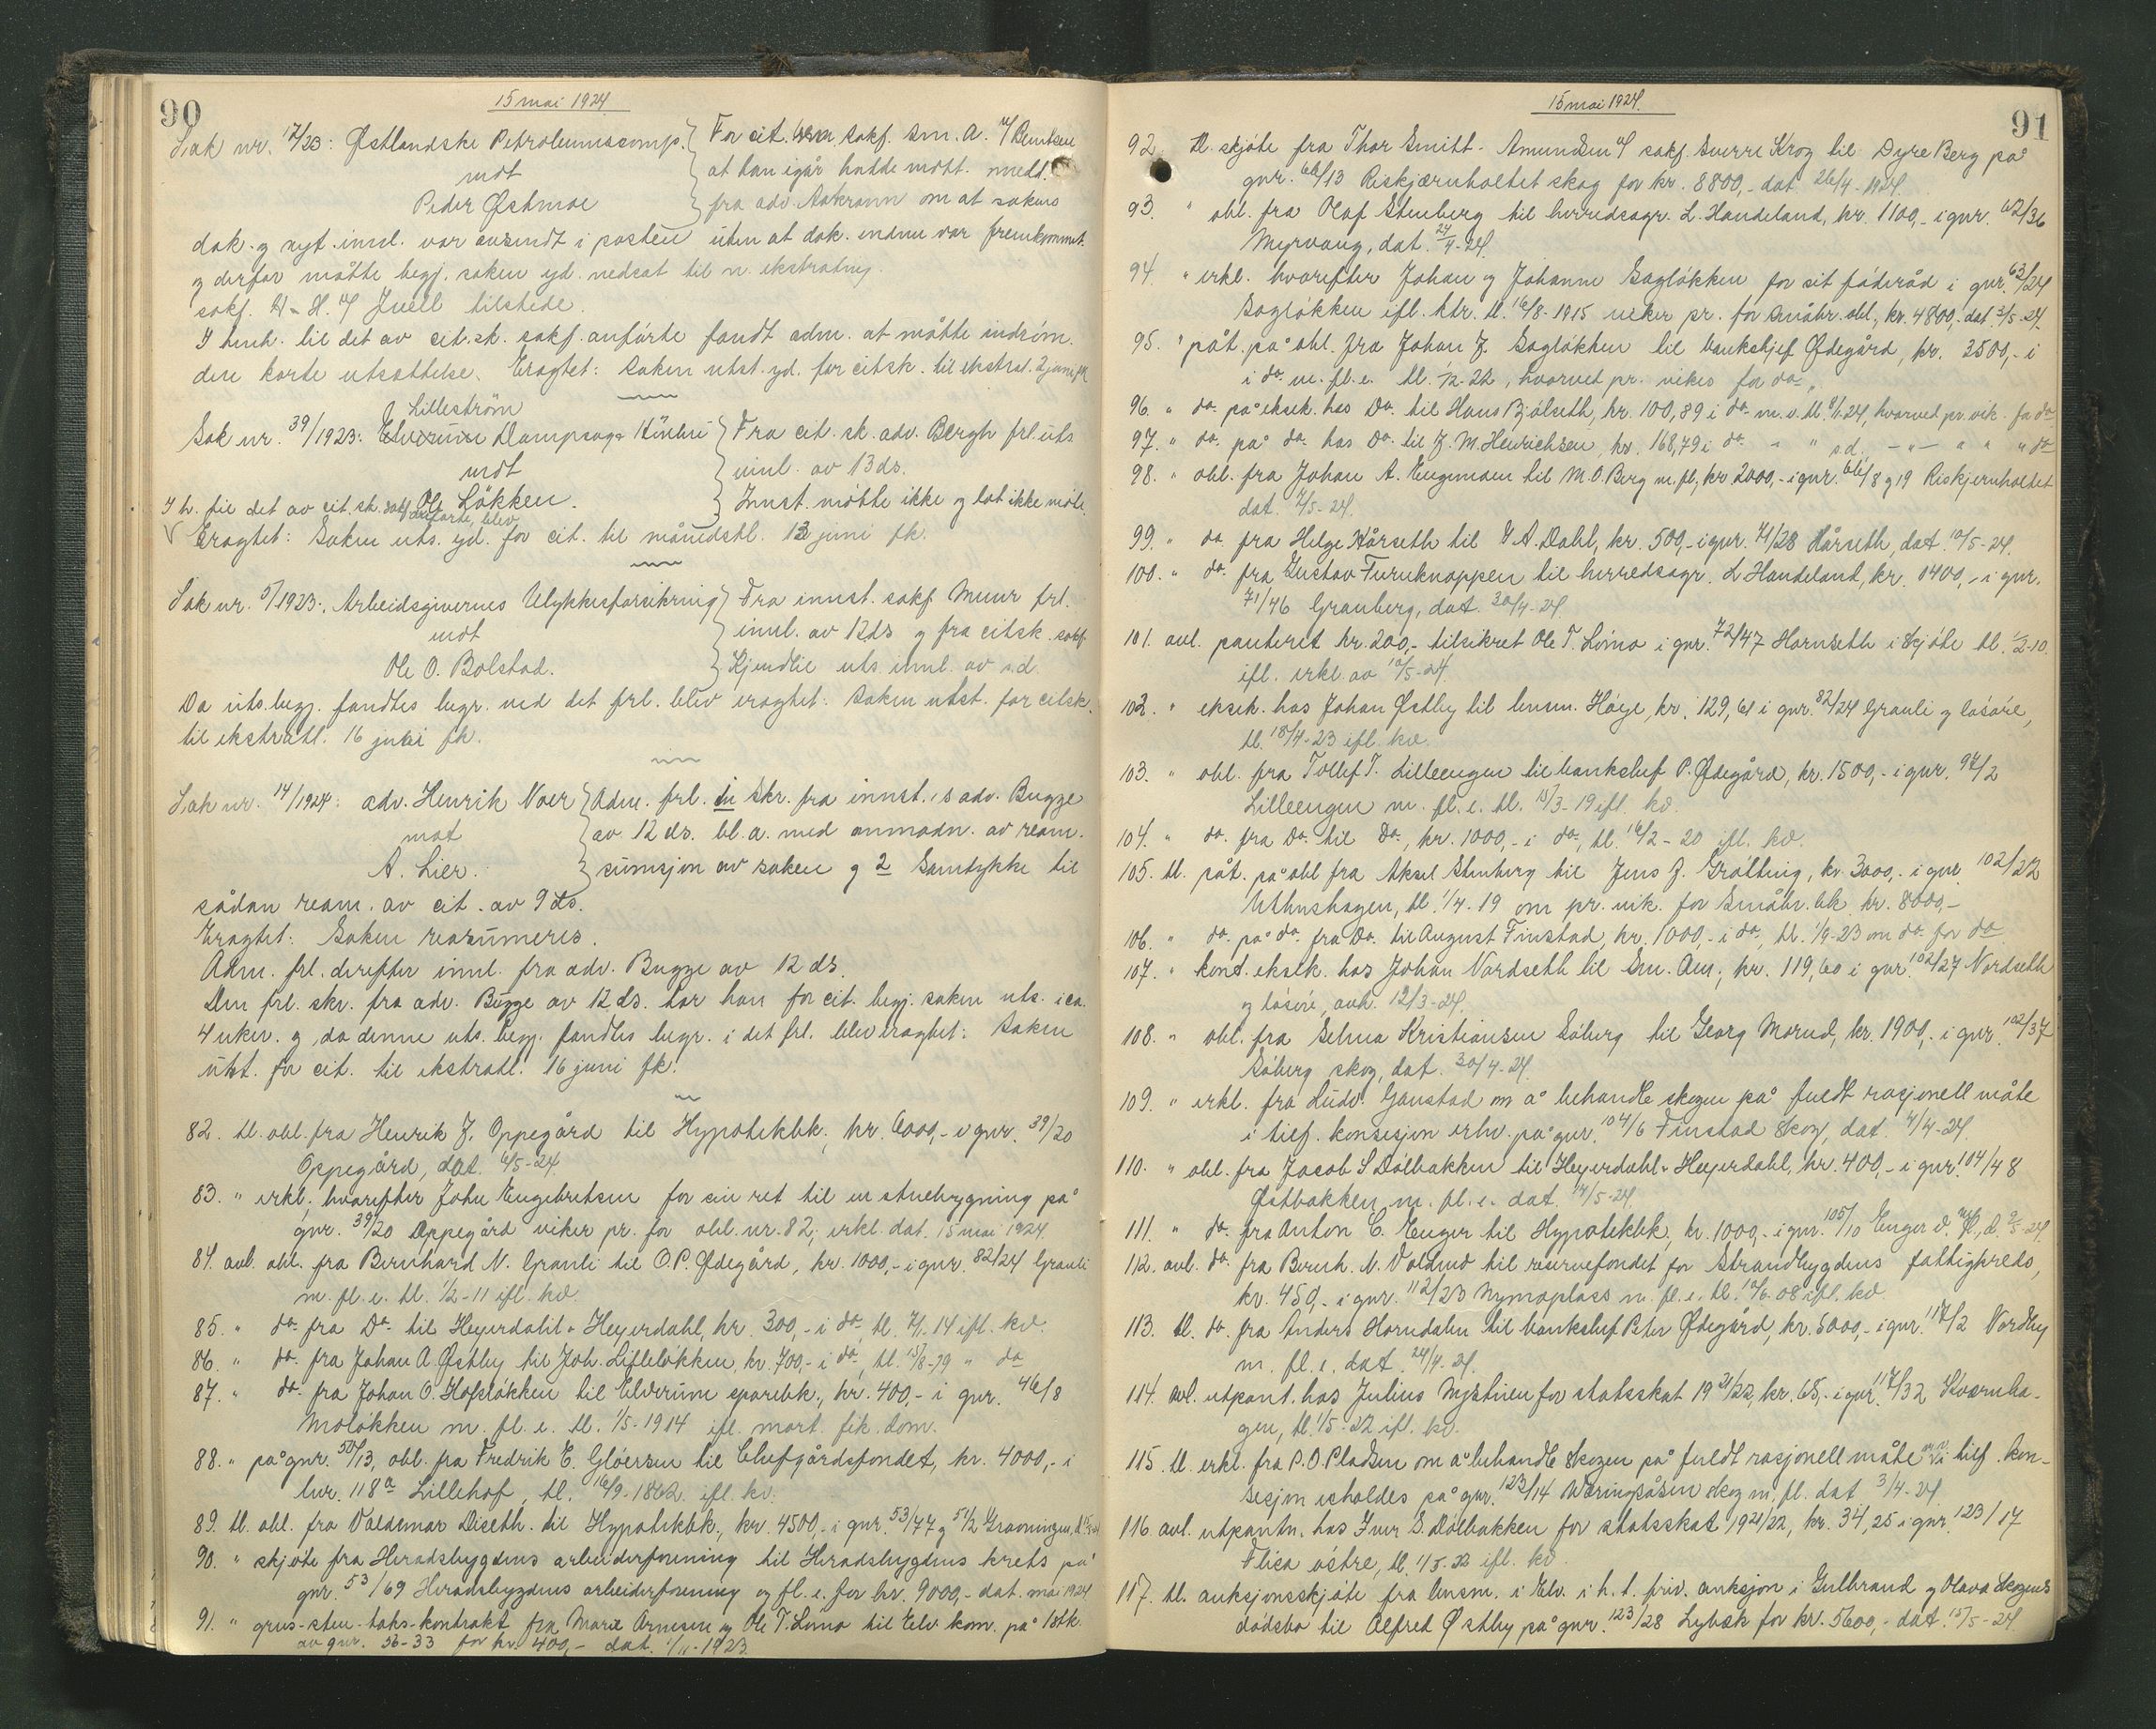 90
15 mai 1924
Sak nr. 12/23: Østlandske Petroleumscomp.
mot
Peder Østmoe
For cit. sakf. Sm. A.
at han igår hadde mott. medd.
fra adv. Aakrann om at sakens
dok. og nyt innl. var avsendt i posten uten at dok. endnu var fremkommet.
og derfor måtte begj. saken yd. nedsat til n. ekstrating.
sakf. Juell tilstede.
I henh. til det av cit.sk. sakf. anførte fandt adm. at måtte indrøm.
den korte utsættelse. Eragtet: Saken utst. yd. for citsk. til ekstrat. 2 juni fk
Sak nr. 39/1923: Lilleström Dampsag & Hövleri
mot
Ole Løkken.
Fra cit. sk. adv. Bergh frl. uts
innl. av 13 ds.
Innst. møtte ikke og lot ikke møte.
I h. til det av cit. sk. sakf. anførte, blev
Eragtet: Saken uts. yd. for cit. til månedstl. 13 juni fk.
Sak nr. 5/1923: Arbeidsgivernes Ulykkesforsikring
mot
Ole O. Bolstad.
Fra innst. sakf. Muur frl.
innl. av 12 ds og fra citsk. sakf.
Kjendlie uts. innl. av s.d.
Da uts. begj. fandtes begr. ved det frl. blev eragtet: Saken utst. for citsk.
til ekstratl. 16 juni fk.
Sak nr. 14/1924: adv. Henrik Noer
mot
A. Lier.
Adm. frl. in skr. fra innst.s adv. Bugge
av 12 ds. bl. a. med anmodn. av ream.
sumsjon av saken og 2 Samtykke til
sådan ream. av cit. av 9 ds.
Eragtet: Saken reasümeres.
Adm. frl. derefter innl. fra adv. Bugge av 12 ds.
Den frl. skr. fra adv. Bugge av 12 ds. har han for cit. begj. saken uts. i ca.
4 uker. og da denne uts. begj. fandtes begr. i det frl. blev eragtet: Saken
utst. for cit. til ekstratl. 16 juni fk.
82. tl. obl. fra Henrik J. Oppegård til Hypotekbk., kr. 6000,- i gnr. 39/20
Oppegård, dat. 6/5-24
83. " erkl., hvorefter John Engebretsen for sin ret til en stuebygning på
gnr. 39/20 Oppegård viker pr. for obl. nr. 82, erkl. dat. 15 mai 1924.
84. avl. obl. fra Bernhard N. Grauli til O.P. Ødegård, kr. 1000,- i gnr. 82/24 Grauli
m. fl. e. tl. 1/2-11 ifl. kv.
85. " do. fra Do. til Heyerdahl & Heyerdahl, kr. 300,- i do., tl. 7/1.14 ifl. kv.
86. " do. fra Johan A. Østby til Joh. Lilleløkken, kr. 700,- i do., tl. 15/8-19 " do
87. " do. fra Johan O. Hofsløkken til Elverum sparebk., kr. 400,- i gnr. 46/8
Moløkken m. fl. e. tl. 1/5-1914 ifl. mort. fik. dom.
88. " på gnr. 50/13, obl. fra Fredrik E. Gløersen til Chefgårdsfondet, kr. 4000,- i
lnr. 118a Lillehof, tl. 16/9-1862. ifl. kv.
89. tl. obl. fra Valdemar Diseth til Hypotekbk., kr. 4500,- i gnr. 53/77 og 54/2 Gravningen,
90. " skjøte fra Heradsbygdens arbeiderforening til Heradsbygdens krets på
gnr. 53/69 Heradsbygdens arbeiderforening og fl. e. for kr. 9000,- dat. mai 1924
91. " grus-sten-taks-kontrakt fra Marie Arnesen og Ole T. Lomo til Elv. kom. på 1 stk.
av gnr. 56-33 for kr. 400,- dat. 1/11-1923.
15 mai 1924.
91
92. tl. skjøte fra Thor Smitt-Amundsen v/ sakf. Sverre Krog til Dyre Berg på
gnr. 66/13 Riskjærnholtet skog for kr. 8800,- dat. 26/4-1924.
93. " obl. fra Olaf Stenberg til herredsagr. L. Handeland, kr. 1100,- i gnr. 62/36
Myrvang, dat. 24/4-24.
94. " erkl. hvorefter Johan og Johanne Sagløkken for sit føderåd i gnr. 63/24
Sagløkken ifl. ktr. tl. 16/8-1915 viker pr. for småbr. obl., kr. 4800,- dat. 2/5-24.
95. " påt. på obl. fra Johan J. Sagløkken til banksjef Ødegård, kr. 3500,- i
i do. m. fl. e. tl. 1/2-22, hvorved pr. vikes for do.
96. " do. på eksek. hos Do. til Hans Bjølseth, kr. 100,89 i do. m. v. tl. 8/1-24, hvorved pr. vik. for do
97. " do. på do. hos Do. til J. M. Henrichsen, kr. 168,79 i do. " " s.d. -"- " " " do
98. " obl. fra Johan A. Engmoen til M. O. Berg m. fl., kr. 2000,- i gnr. 66/8 og 19 Riskjernholtet
dat. 7/5-24.
99. " do. fra Helge Hårseth til G. A. Dahl, kr. 500,- i gnr. 71/28 Hårseth, dat. 10/5-24.
100. " do. fra Gustav Furuknappen til herredsagr. L. Handeland, kr. 1400,- i gnr.
71/46 Granberg, dat. 30/4-24.
101. avl. panteret kr. 200,- tilsikret Ole T. Lömo i gnr. 72/47 Hornseth i skjøte tl. 1/2-10.
ifl. erkl. av 10/5-24.
102. " eksek. hos Johan Østby til lensm. Høye, kr. 129,61 i gnr. 82/24 Grauli og løsøre,
tl. 18/4-23 ifl. kv.
103. " obl. fra Tollef T. Lilleengen til bankchef P. Ødegård, kr. 1500,- i gnr. 97/2
Lilleengen m. fl. e. tl. 15/3-19 ifl. kv.
104. " do. fra Do. til Do., kr. 1000,- i do., tl. 16/2-20 ifl. kv.
105. tl. påt. på obl. fra Aksel Stenberg til Jens J. Grøtting, kr. 3000,- i gnr. 102/22
Uthushagen, tl. 1/4-19 om pr. vik. for Småbr. bk. kr. 8000,-
106. " do. på do. fra Do. til August Finstad, kr. 1000,- i do., tl. 1/9-23 om do. for do
107. " kont. eksek. hos Johan Nordseth til Sm. Am., kr. 119,60 i gnr. 102/27 Nordseth
og løsøre, avh. 12/3-24.
108. " obl. fra Selma Kristiansen Søberg til Georg Morud, kr. 1900,- i gnr. 102/37
Søberg skog, dat. 30/4-24.
109. " erkl. fra Ludv. Gaustad om å behandle skogen på fuldt rasjonell måte
i tilf. konsesjon erhv. på gnr. 104/6 Finstad skog, dat. 4/4-24.
110. " obl. fra Jacob S. Dølbakken til Heyerdahl & Heyerdahl, kr. 400,- i gnr. 104/48
Østbakken m. fl. e. dat. 14/5-24.
111. " do. fra Anton C. Enger til Hypotekbk., kr. 1000,- i gnr. 105/10 Enger v. m. fl., d. 9/5-24.
112. avl. do. fra Bernh. N. Voldmo til reservefondet for Strandbygdens fattigkreds,
kr. 450,- i gnr. 112/23 Nymoplass m. fl. e. tl. 10/6-08 ifl. kv.
113. tl. do. fra Anders Horndalen til bankchef Peter Ødegård, kr. 5000,- i gnr. 117/2 Nordby
m. fl. e. dat. 24/4-24.
114. avl. utpant. hos Julius Nystuen for statsskat 1921/22, kr. 65,- i gnr. 117/32 Kværnha-
gen, tl. 1/5-22 ifl. kv.
115. tl. erkl. fra P. O. Pladsen om å behandle skogen på fuldt rasjonell måte m. v. i tilf. kon-
sesjon erholdes på gnr. 123/14 Væringsåsen skog m. fl. dat. 3/4-24.
116. avl. utpantn. hos Iver S. Dølbakken for statsskat 1921/22, kr. 34,25 i gnr. 123/17
Flisa østre, tl. 1/5-22 ifl. kv.
117. tl. auksjonsskjøte fra lensm. i Elv. i h. t. friv. auksjon i Gulbrand og Olava Skogens
dødsbo til Alfred Østby på gnr. 123/28 Lybæk for kr. 5600,- dat. 15/5-24.